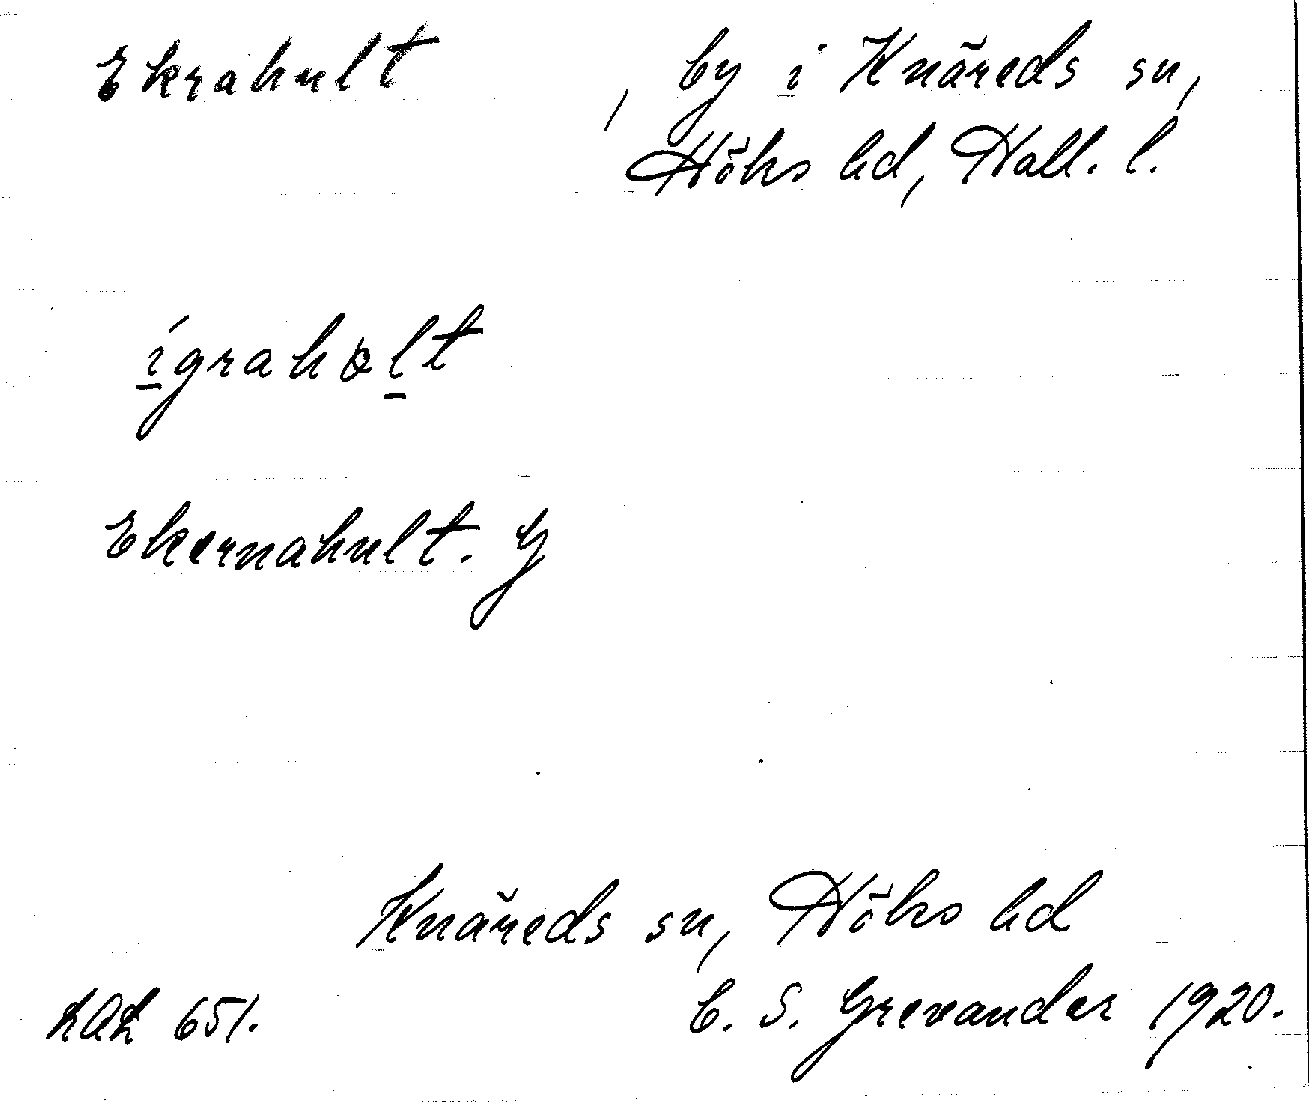 Ekrahult, by i Knäreds sn,
Höks hd, Hall. l.
ígrahɵlt
Ekernahult. G
Knäreds sn, Höks hd
LAL 651. C. S. Grevander 1920.